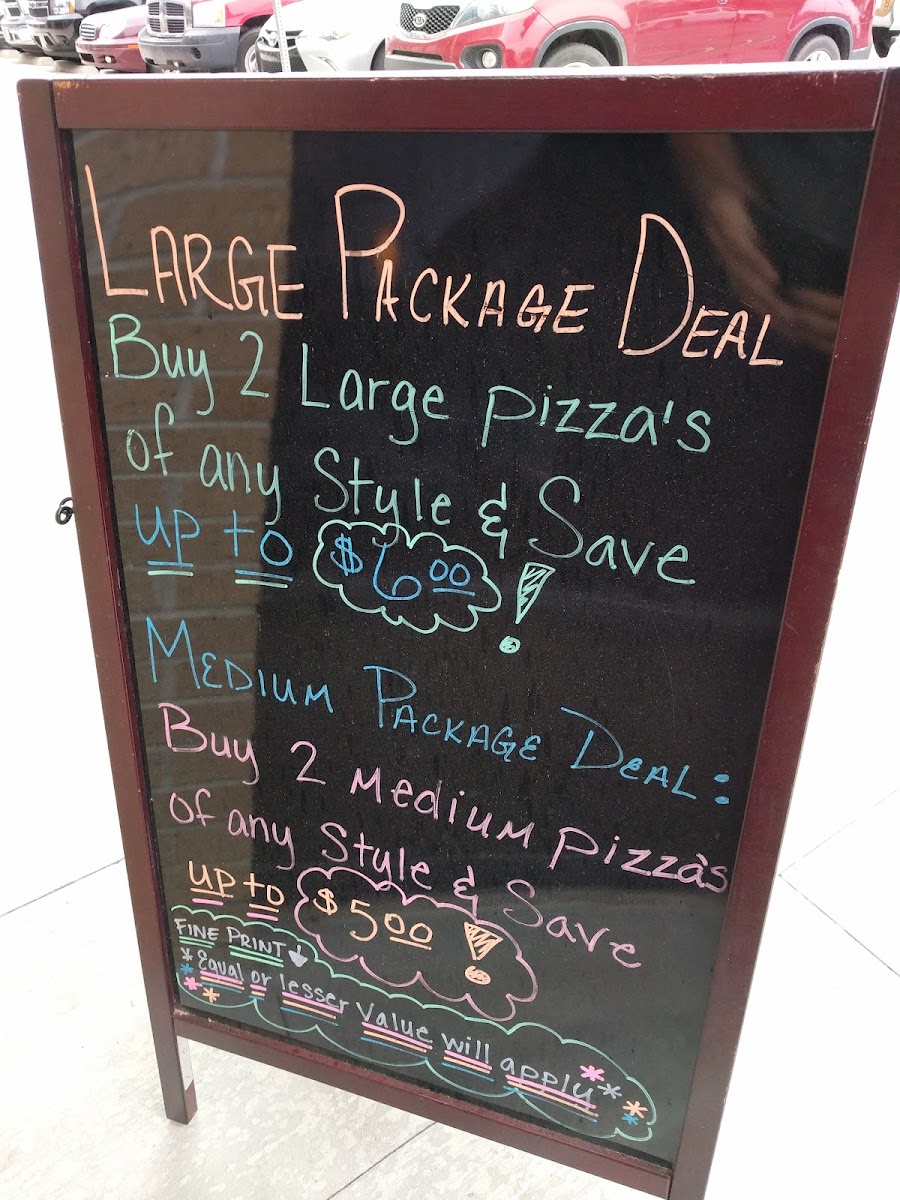 LARGE PACKAGE DEAL
Buy 2 Large pizza's
of any Style & Save
up to $6.00 !
MEDIUM PACKAGE DEAL:
Buy 2 Medium pizza's
of any Style & Save
up to $5.00 !
FINE PRINT ↓
* Equal or lesser Value will apply *
KIA